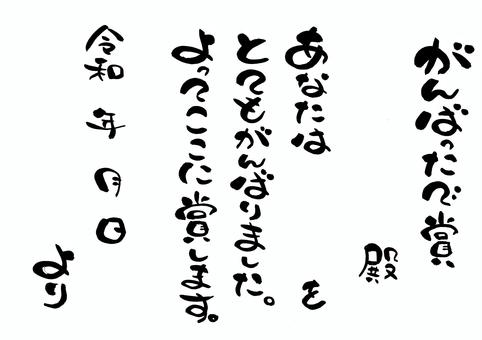 がんばったで賞
殿
あなたは　　　を
とてもがんばりました。
よってここに賞します。
令和　年　月　日
より